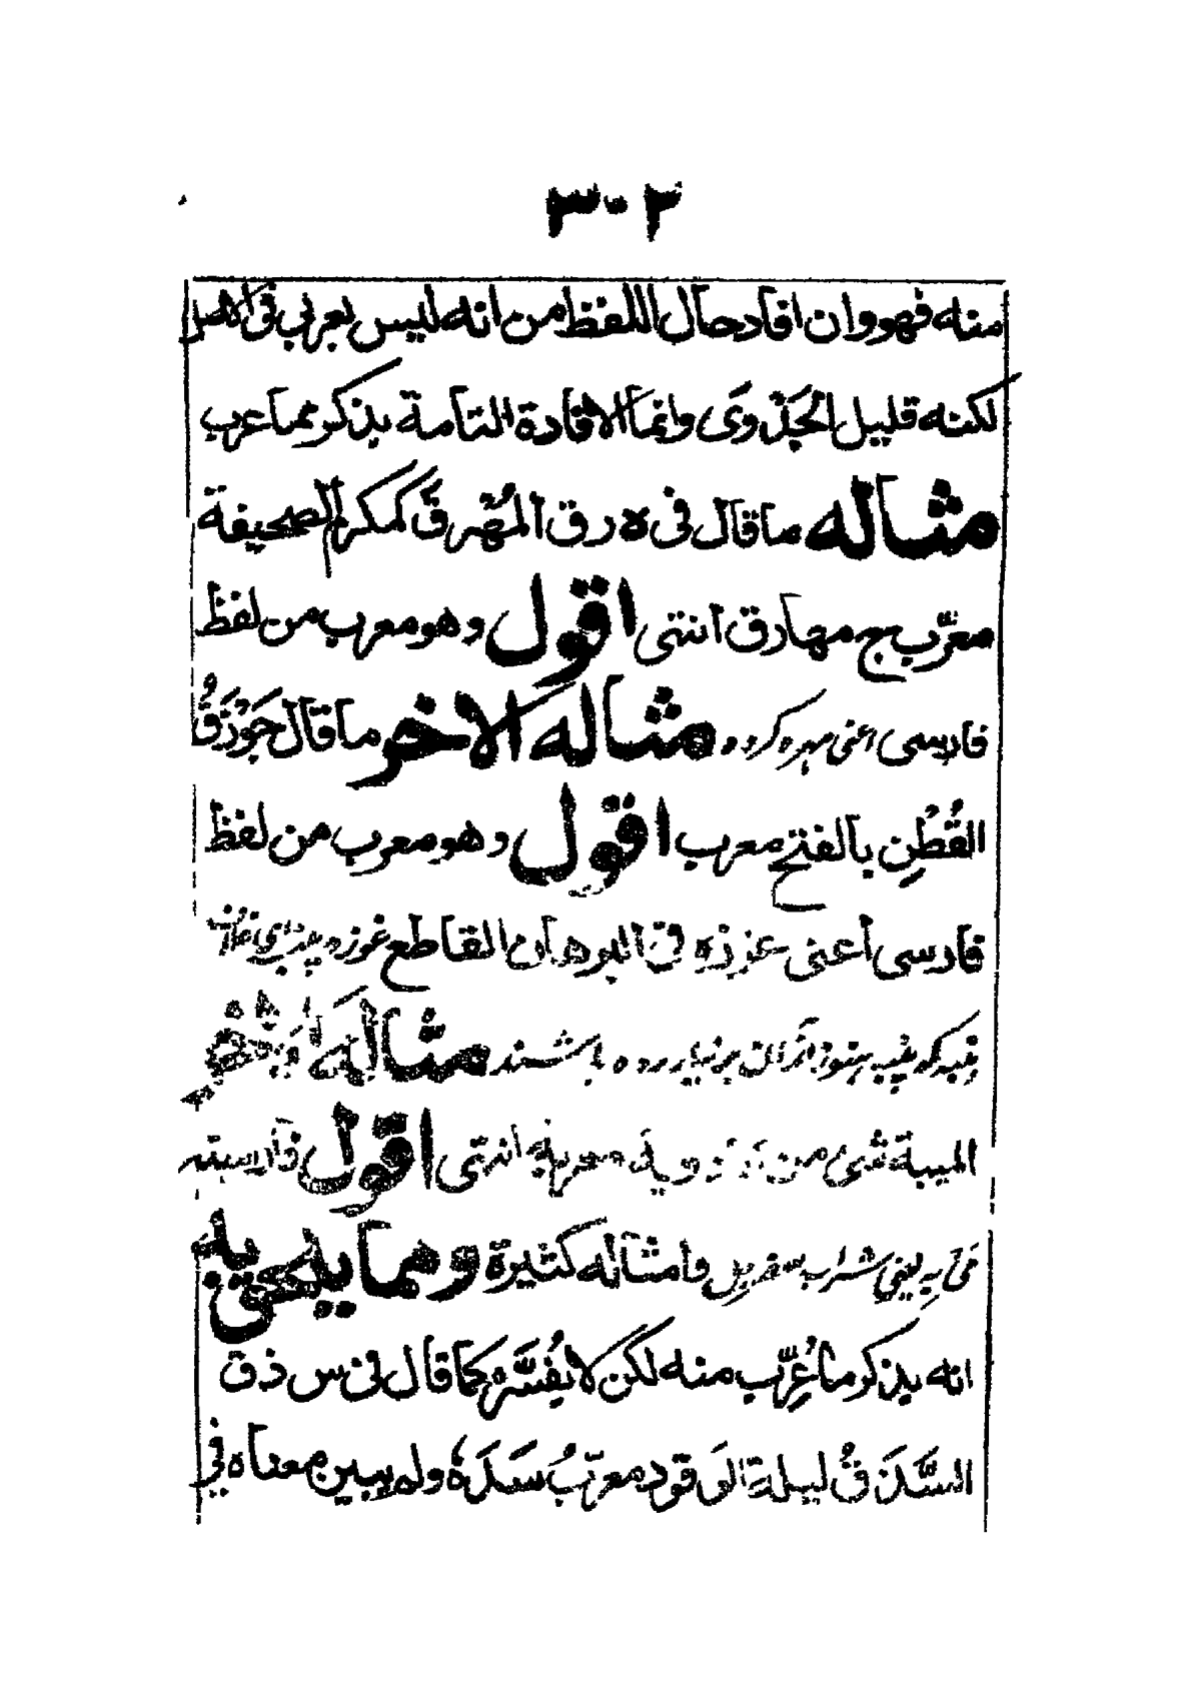 ٣٠٢
منه فهو وان افاد حال اللفظ من انه ليس بعربي في الاصل
لكنه قليل الجَدْوَى وانما الافادة التامة بذكر مما عرب
مثاله ما قال في ه ر ق المُهْرَق كمكرم الصحيفة
معرّب ج مهارق انتهى اقول وهو معرب من لفظ
فارسي اعنى مهره كرده مثاله الاخر ما قال جَوْزَقُ
القُطْنِ بالفتح معرب اقول وهو معرب من لفظ
فارسى اعنى غوزه فى البرهان القاطع غوزه
پنبه كه پنبه هنوز ازان برنياورده باشند مثاله
الميبة شئ من الادوية معربة انتهى اقول فارسيته
مى به يعني شراب سفرجل وامثاله كثيرة ومما يلحق به
انه يذكر ما عُرِّب منه لكن لا يُفسّره كما قال فى س ذ ق
السَّذَقُ ليلة الوَقود معرّبُ سَدَهْ ولم يبين معناه في